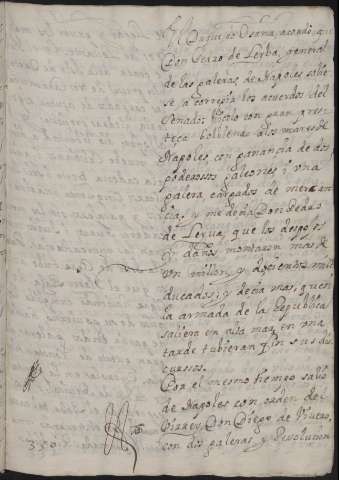 El Duque de Osuna, acordó, que
Don Pedro de Leyva, general
de las galeras de Napoles salie
se a corregir los acuerdos del
Senado; hiçolo con gran pres
teça bolbiendo a los mares de
Napoles, con ganancia de dos
poderosos galeones i una
galera, cargados de mercan
cias, y me decia Don Pedro
de Leyva, que los despojos
y daños montaron mas de
un millon, y docientos mil
ducados; y decia mas, que si
la armada de la Republica
saliera en alta mar, en una
tarde tubieran fin sus dis
cursos.
Por el mesmo tiempo salio
de Napoles con orden del
Virrey, Don Diego de Vivero,
con dos galeras, y
350